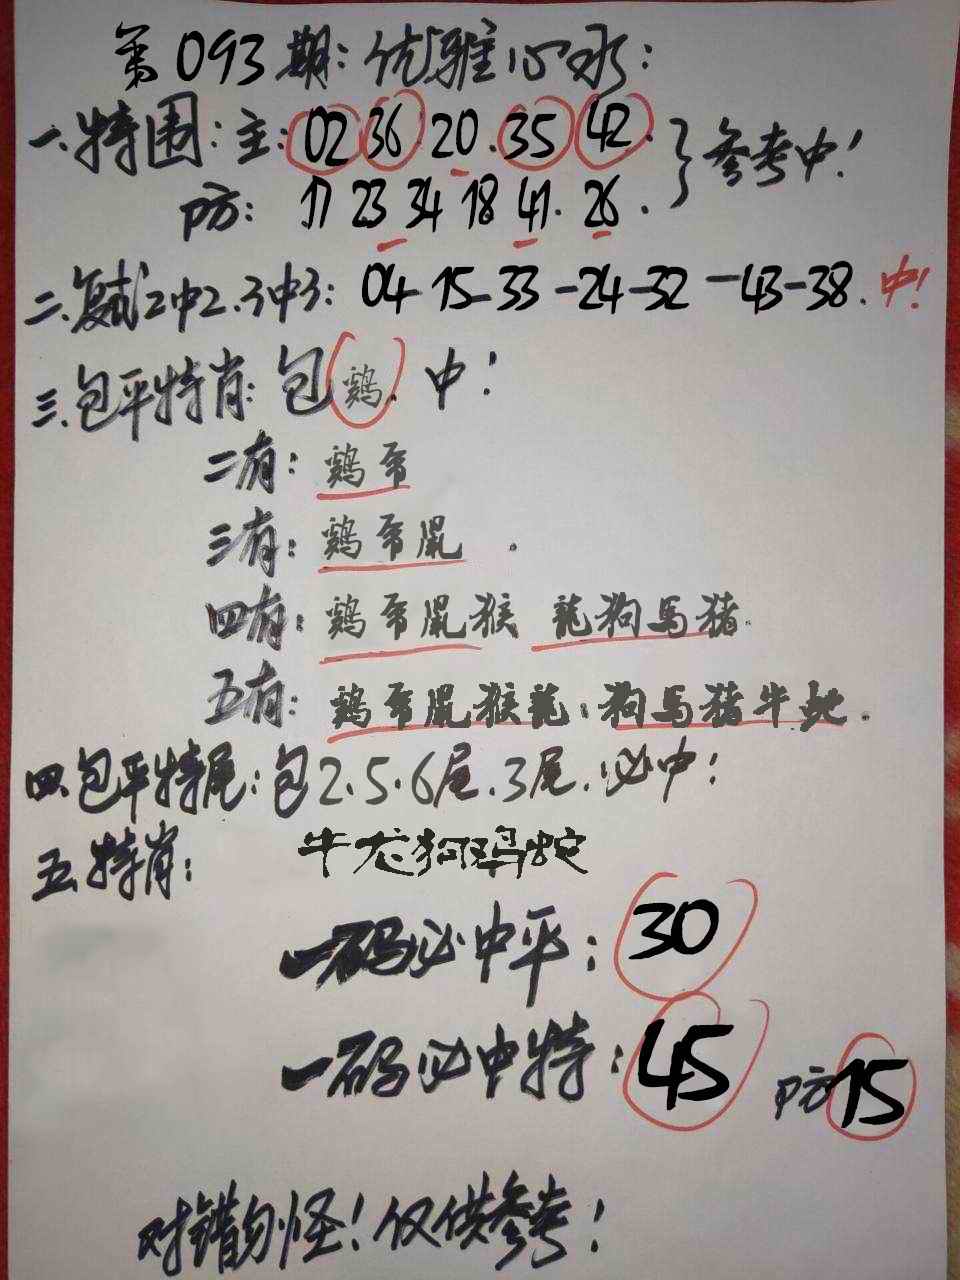 第093期:优雅心水:
一.特围:主:02 36 20.35 42.}参考中!
防: 17 23 34 18 41. 26.
二.复式2中2.3中3: 04-15-33-24-32-43-38.中!
三.包平特肖:包鸡.中!
二有:鷄帝
三有:鷄帝鼠.
四有:鷄帝鼠猴 龍狗馬猪.
五有:鷄帝鼠猴龍:狗馬猪牛蛇.
四.包平特尾:包2.5.6尾.3尾.必中!
五.特肖: 牛龙狗鸡蛇
一码必中平:30
一码必中特:45 防15
对错勿怪!仅供参考!